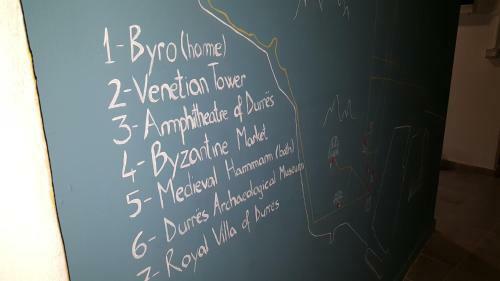 1- Byro (home)
2- Venetian Tower
3- Amphitheatre of Durrës
4- Byzantine Market
5- Medieval Hammam (bath)
6- Durrës Archaeological Museum
7- Royal Villa of Durrës